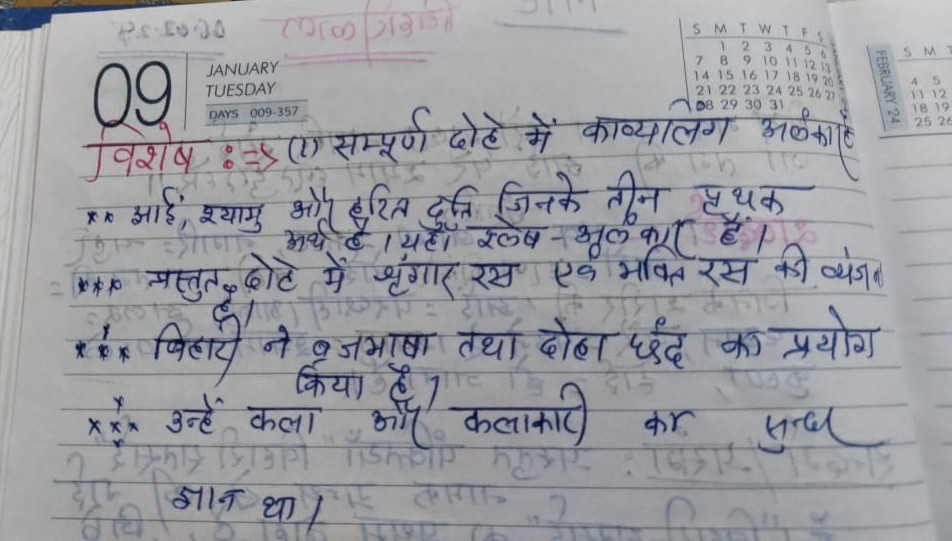 09
JANUARY
TUESDAY
DAYS 009-357
S M T W T F S
1 2 3 4 5 6
7 8 9 10 11 12 13
14 15 16 17 18 19 20
21 22 23 24 25 26 27
28 29 30 31
FEBRUARY '24
S M T
4 5
11 12
18 19
25 26
विशेष :=> (1) सम्पूर्ण दोहे में काव्यालिंग अलंकार है
** झाई, श्यामु और हरित दुति जिनके तीन पृथक
अर्थ है । यहाँ श्लेष - अलंकार है ।
*** प्रस्तुत दोहे में श्रृंगार रस एवं भक्ति रस की व्यंजना
है।
*** बिहारी ने ब्रजभाषा तथा दोहा छंद का प्रयोग
किया है ।
*** उन्हें कला और कलाकारी का सुन्दर
ज्ञान था ।